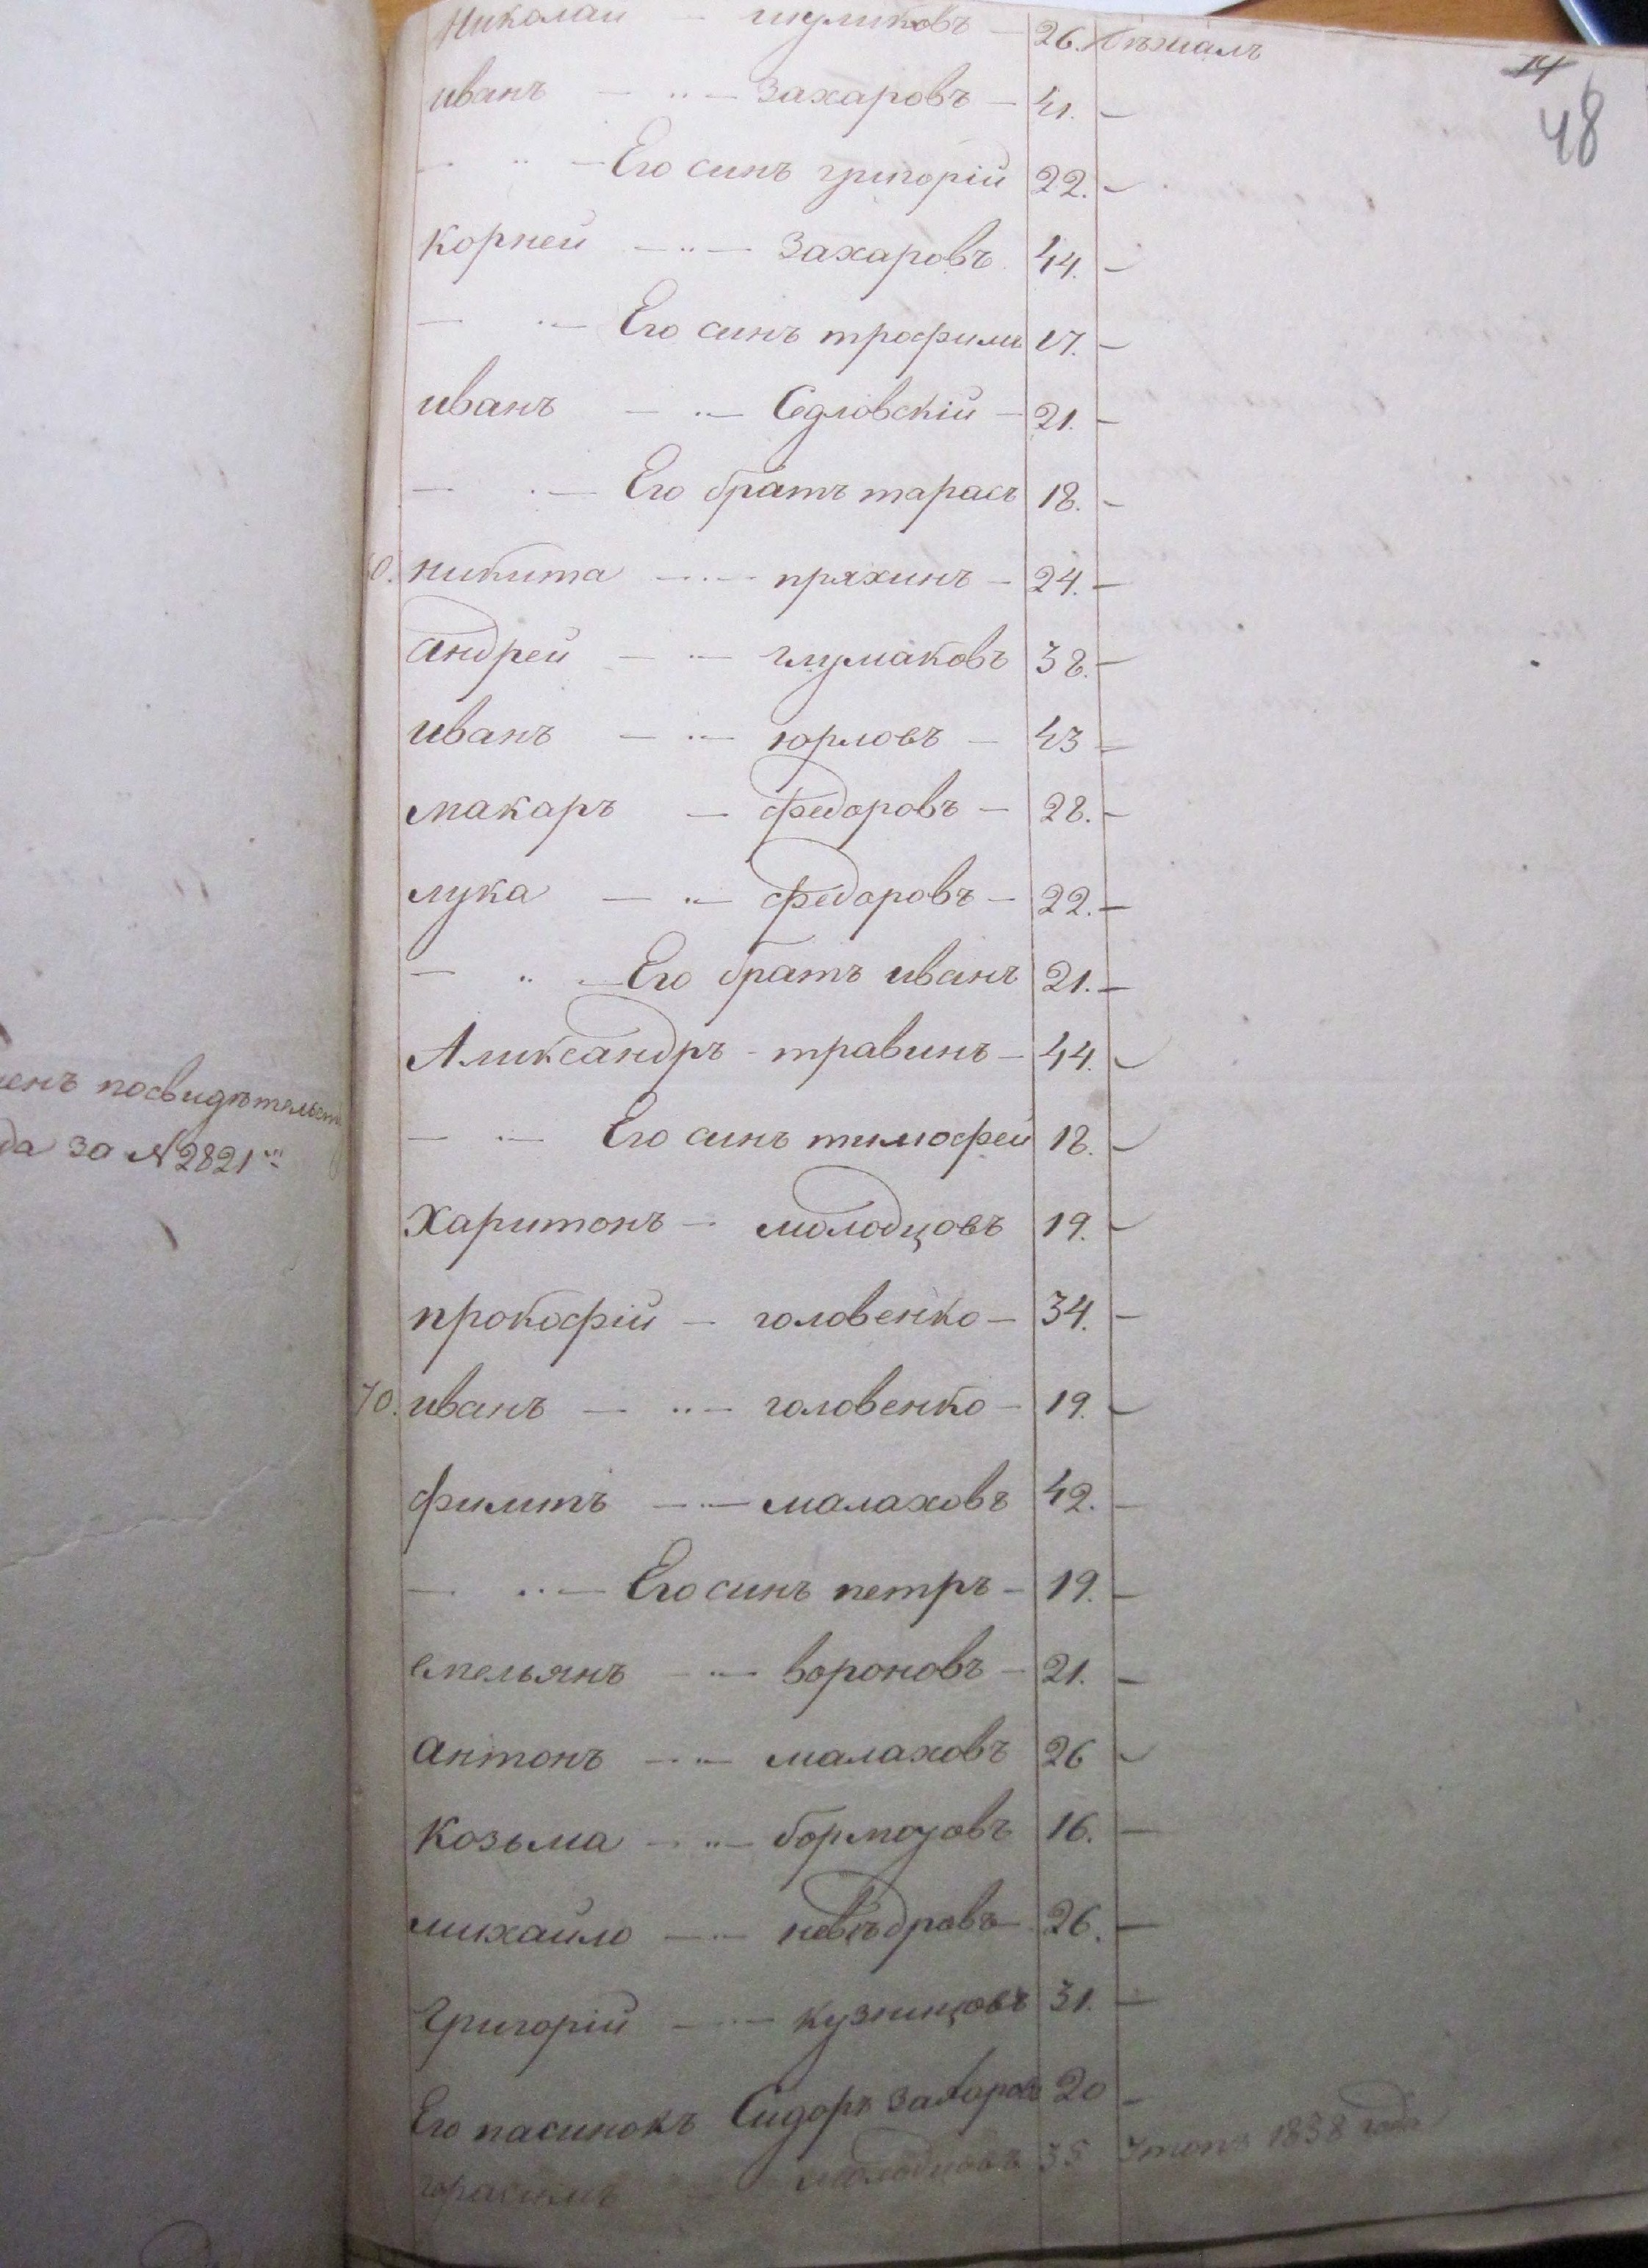 14
48
Николай шуликовъ — 26. Бѣжалъ
иванъ — .. — Захаровъ — 41. —
— .. — Его синъ григорій 22. —
Корней — .. — Захаровъ 44. —
— .. — Его синъ трофимъ 17. —
иванъ — .. — Седловскій — 21. —
— .. — Его братъ тарасъ 18. —
60. никита — .. — пряхинъ — 24. —
андрей — .. — глумаковъ 38. —
иванъ — .. — юрловъ — 43 —
макаръ — федоровъ — 28. —
лука — .. — федоровъ — 22. —
— .. — Его братъ иванъ 21. —
Аликсандръ - травинъ — 44. —
— .. — Его синъ тимофей 18. —
Харитонъ — молодцовъ 19. —
прокофій — головенко — 34. —
70. иванъ — .. — головенко — 19. —
филипъ — .. — малаховъ 42. —
— .. — Его синъ петръ — 19. —
емельянъ — .. — вороновъ — 21. —
антонъ — .. — малаховъ 26 —
Козьма — .. — бормотовъ 16. —
михайло — .. — невѣдровъ — 26. —
Григорій — .. — кузницовъ 31. —
Его пасинокъ Сидоръ Захаровъ 20 —
горасимъ — молодцовъ 35 1838 года
енъ посвидѣтельст
да за №2821